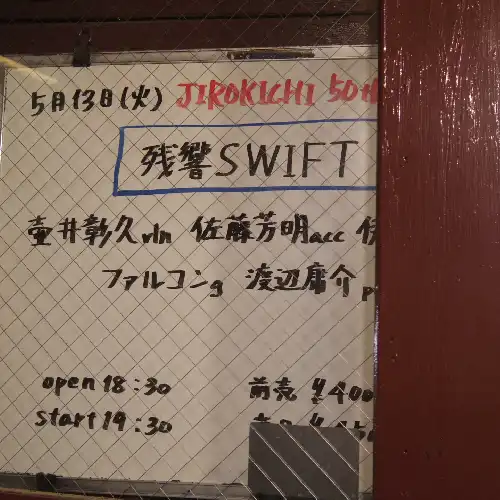 5月13日(火) JIROKICHI 50th
残響SWIFT
壷井彰久vln 佐藤芳明acc
ファルコンg 渡辺庸介
open 18:30 前売 ¥400
start 19:30